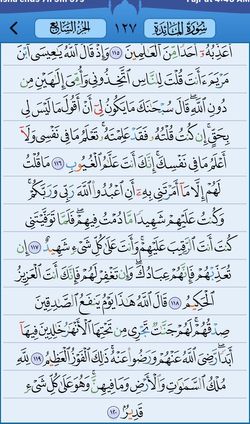 الجزء السابع ١٢٧ سورة المائدة
أُعَذِّبُهُۥٓ أَحَدًا مِّنَ ٱلْعَٰلَمِينَ ١١٥ وَإِذْ قَالَ ٱللَّهُ يَٰعِيسَى ٱبْنَ
مَرْيَمَ ءَأَنتَ قُلْتَ لِلنَّاسِ ٱتَّخِذُونِى وَأُمِّىَ إِلَٰهَيْنِ مِن
دُونِ ٱللَّهِ ۖ قَالَ سُبْحَٰنَكَ مَا يَكُونُ لِىٓ أَنْ أَقُولَ مَا لَيْسَ لِى
بِحَقٍّ ۚ إِن كُنتُ قُلْتُهُۥ فَقَدْ عَلِمْتَهُۥ ۚ تَعْلَمُ مَا فِى نَفْسِى وَلَآ
أَعْلَمُ مَا فِى نَفْسِكَ ۚ إِنَّكَ أَنتَ عَلَّٰمُ ٱلْغُيُوبِ ١١٦ مَا قُلْتُ
لَهُمْ إِلَّا مَآ أَمَرْتَنِى بِهِۦٓ أَنِ ٱعْبُدُوا۟ ٱللَّهَ رَبِّى وَرَبَّكُمْ ۚ
وَكُنتُ عَلَيْهِمْ شَهِيدًا مَّا دُمْتُ فِيهِمْ ۖ فَلَمَّا تَوَفَّيْتَنِى
كُنتَ أَنتَ ٱلرَّقِيبَ عَلَيْهِمْ ۚ وَأَنتَ عَلَىٰ كُلِّ شَىْءٍ شَهِيدٌ ١١٧ إِن
تُعَذِّبْهُمْ فَإِنَّهُمْ عِبَادُكَ ۖ وَإِن تَغْفِرْ لَهُمْ فَإِنَّكَ أَنتَ ٱلْعَزِيزُ
ٱلْحَكِيمُ ١١٨ قَالَ ٱللَّهُ هَٰذَا يَوْمُ يَنفَعُ ٱلصَّٰدِقِينَ
صِدْقُهُمْ ۚ لَهُمْ جَنَّٰتٌ تَجْرِى مِن تَحْتِهَا ٱلْأَنْهَٰرُ خَٰلِدِينَ فِيهَآ
أَبَدًا ۚ رَّضِىَ ٱللَّهُ عَنْهُمْ وَرَضُوا۟ عَنْهُ ۚ ذَٰلِكَ ٱلْفَوْزُ ٱلْعَظِيمُ ١١٩ لِلَّهِ
مُلْكُ ٱلسَّمَٰوَٰتِ وَٱلْأَرْضِ وَمَا فِيهِنَّ ۚ وَهُوَ عَلَىٰ كُلِّ شَىْءٍ
قَدِيرٌ ١٢٠